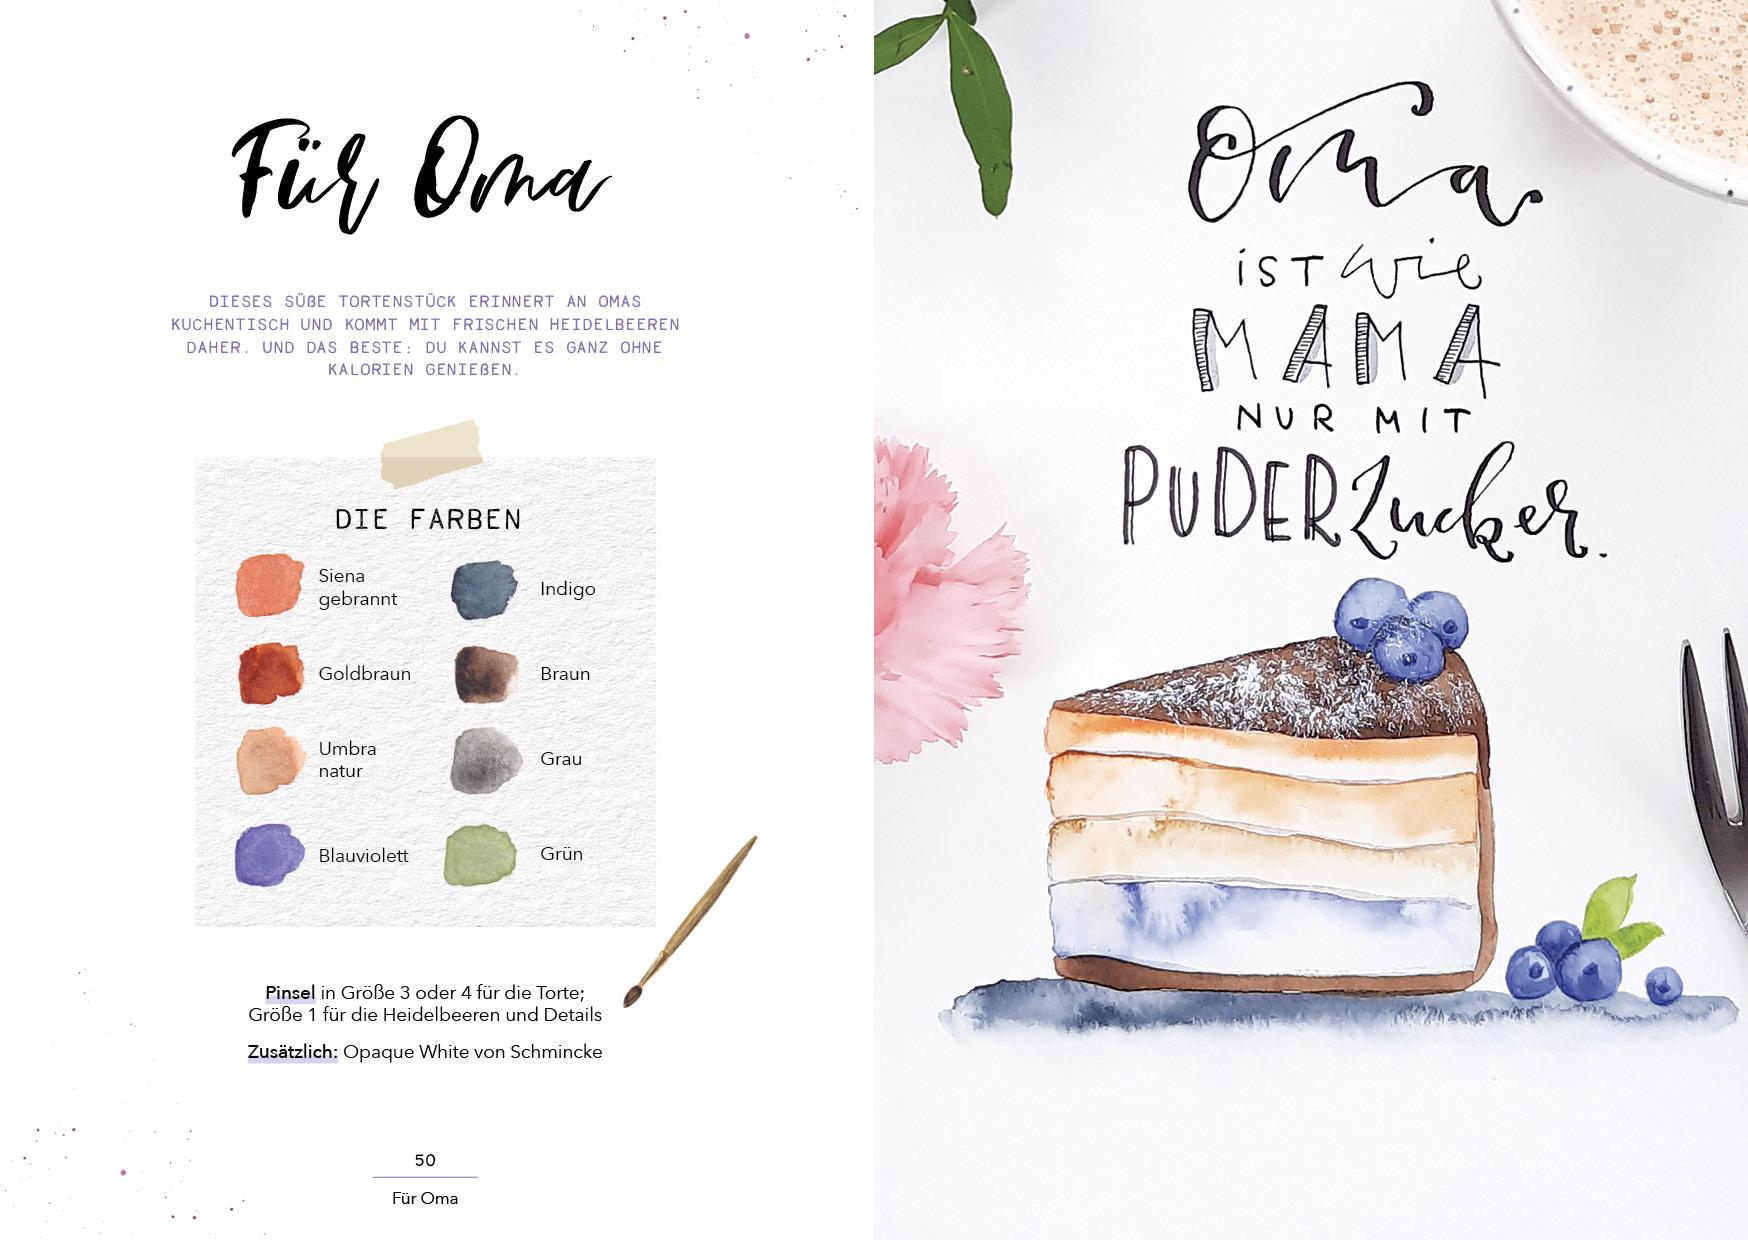 Für Oma
DIESES SÜßE TORTENSTÜCK ERINNERT AN OMAS
KUCHENTISCH UND KOMMT MIT FRISCHEN HEIDELBEEREN
DAHER. UND DAS BESTE: DU KANNST ES GANZ OHNE
KALORIEN GENIEßEN.
DIE FARBEN
Siena
gebrannt
Indigo
Goldbraun
Braun
Umbra
natur
Grau
Blauviolett
Grün
Pinsel in Größe 3 oder 4 für die Torte;
Größe 1 für die Heidelbeeren und Details
Zusätzlich: Opaque White von Schmincke
50
Für Oma
Oma
iST wie
MAMA
NUR MIT
PUDERZucker.